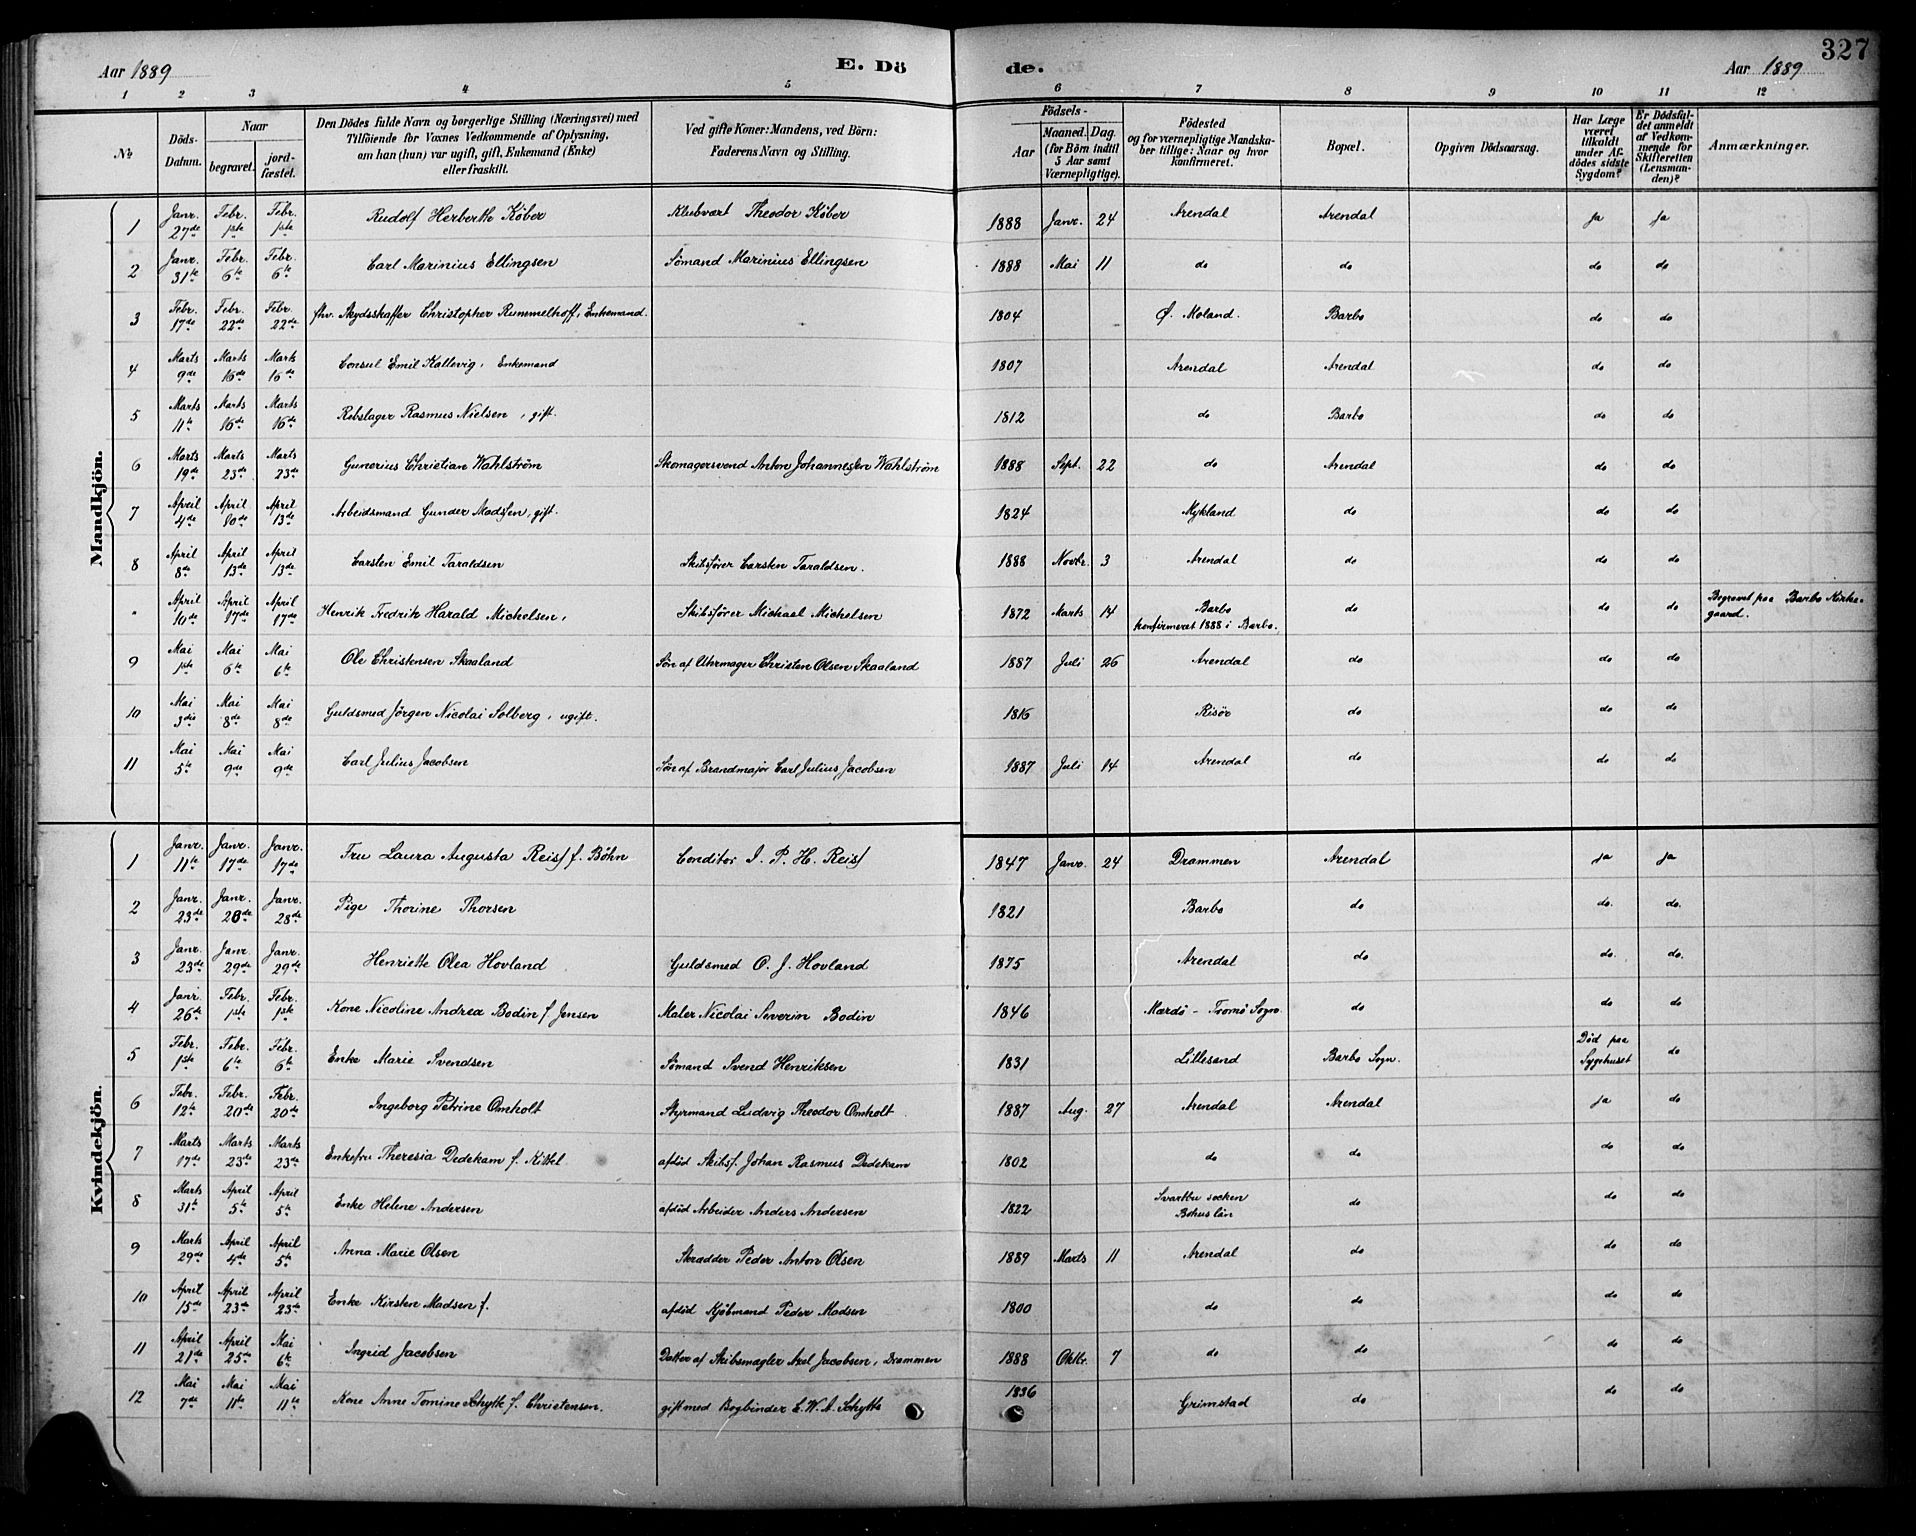 Aar 1889 E. Dö de. Aar 1889 327
1 2 3 4 5 6 7 8 9 10 11 12
№ Döds-Datum. Naar begravet. jord-fæstet. Den Dödes fulde Navn og borgerlige Stilling (Næringsvei) med Tilföiende for Voxnes Vedkommende af Oplysning, om han (hun) var ugift, gift, Enkemand (Enke) eller fraskilt. Ved gifte Koner: Mandens, ved Börn: Faderens Navn og Stilling. Födsels- Aar Maaned. Dag. (for Börn indtil 5 Aar samt Værnepligtige). Födested og for værnepligtige Mandska-ber tillige: Naar og hvor konfirmeret. Bopæl. Opgiven Dödsaarsag. Har Læge været tilkaldt under Af-dödes sidste Sygdom? Er Dödsfal-det anmeldt af Vedkom-mende for Skifteretten (Lensman-den)? Anmærkninger.
Mandkjön.
1 Janr. 27de Febr. 1ste Febr. 1ste Rudolf Herberth Köber Klubvært Theodor Köber 1888 Janr. 24 Arendal Arendal ja ja
2 Janr. 31te Febr. 6te Febr. 6te Carl Marinius Ellingsen Sömand Marinius Ellingsen 1888 Mai 11 do do do do
3 Febr. 17de Febr. 22de Febr. 22de fhv. Skydsskaffer Christopher Rummelhoff, Enkemand. 1804 Ø. Moland. Barbo do do
4 Marts 9de Marts 16de Marts 16de Consul Emil Kallevig, Enkemand 1807 Arendal Arendal do do
5 Marts 11te Marts 16de Marts 16de Rebslager Rasmus Nielsen, gift. 1812 do Barbo do do
6 Marts 19de Marts 23de Marts 23de Gunerius Christian Wahlström Skomagersvend Anton Johannessen Wahlström 1888 Sept. 22 do Arendal do do
7 April 4de April 10de April 13de Arbeidsmand Gunder Madssen, gift. 1824 Mykland do do do
8 April 8de April 13de April 13de Carsten Emil Taraldsen Skibsfører Carsten Taraldsen. 1888 Novbr. 3 Arendal do do do
" April 10de April 17de April 17de Henrik Fredrik Harald Michelsen, Skibsfører Michael Michelsen 1872 Marts 14 Barbo konfirmeret 1888 i Barbo. do do do Begravet paa Barbo Kirke-gaard.
9 Mai 1ste Mai 6te Mai 6te Ole Christensen Skaaland Søn af Uhrmager Christen Olsen Skaaland 1887 Juli 26 Arendal do do do
10 Mai 3die Mai 8de Mai 8de Guldsmed Jörgen Nicolai Solberg, ugift. 1816 Risör do do do
11 Mai 5te Mai 9de Mai 9de Carl Julius Jacobsen Søn af Brandmajor Carl Julius Jacobsen 1887 Juli 14 Arendal do do do
Kvindekjön.
1 Janr. 11te Janr. 17de Janr. 17de Fru Laura Augusta Reiss f. Böhn Conditor I. P. H. Reiss 1847 Janr. 24 Drammen Arendal ja ja
2 Janr. 23de Janr. 28de Janr. 28de Pige Thorine Thorsen 1821 Barbo do do. do.
3 Janr. 23de Janr. 29de Janr. 29de Henriette Olea Hovland Guldsmed O. J. Hovland 1875 Arendal do do. do.
4 Janr. 26de Febr. 1ste Febr. 1ste Kone Nicoline Andrea Bodin f. Jensen Maler Nicolai Severin Bodin 1846 Mærdö - Tromö Sogn. do do do
5 Febr. 1ste Febr. 6te Febr. 6te Enke Marie Svendsen Sömand Svend Henriksen 1831 Lillesand Barbo Sogn. Död paa Sygehuset do
6 Febr. 12te Febr. 20de Febr. 20de Ingeborg Petrine Omholt Styrmand Ludvig Theodor Omholt 1887 Aug. 27 Arendal Arendal ja do
7 Marts 17de Marts 23de Marts 23de Enkefru Theresia Dedekam f. Kittel afdöd Skibsf. Johan Rasmus Dedekam 1802 do do do do
8 Marts 31te April 5te April 5te Enke Helene Andersen afdöd Arbeider Anders Andersen 1822 Svartbu socken Bohus län do do do
9 Marts 29de April 4de April 5te Anna Marie Olsen Skrædder Peder Anton Olsen 1889 Marts 11 Arendal do do do
10 April 15de April 23de April 23de Enke Kirsten Madsen f. afdöd Kjöbmand Peder Madsen 1800 do do do do
11 April 21de April 25de Mai 6te Ingrid Jacobsen Datter af Skibsmægler Axel Jacobsen, Drammen 1888 Oktbr. 7 do do do do
12 Mai 7de Mai 11te Mai 11te Kone Anne Tomine Schytte f. Christensen. gift med Bogbinder E. W. A. Schytte 1836 Grimstad do do do